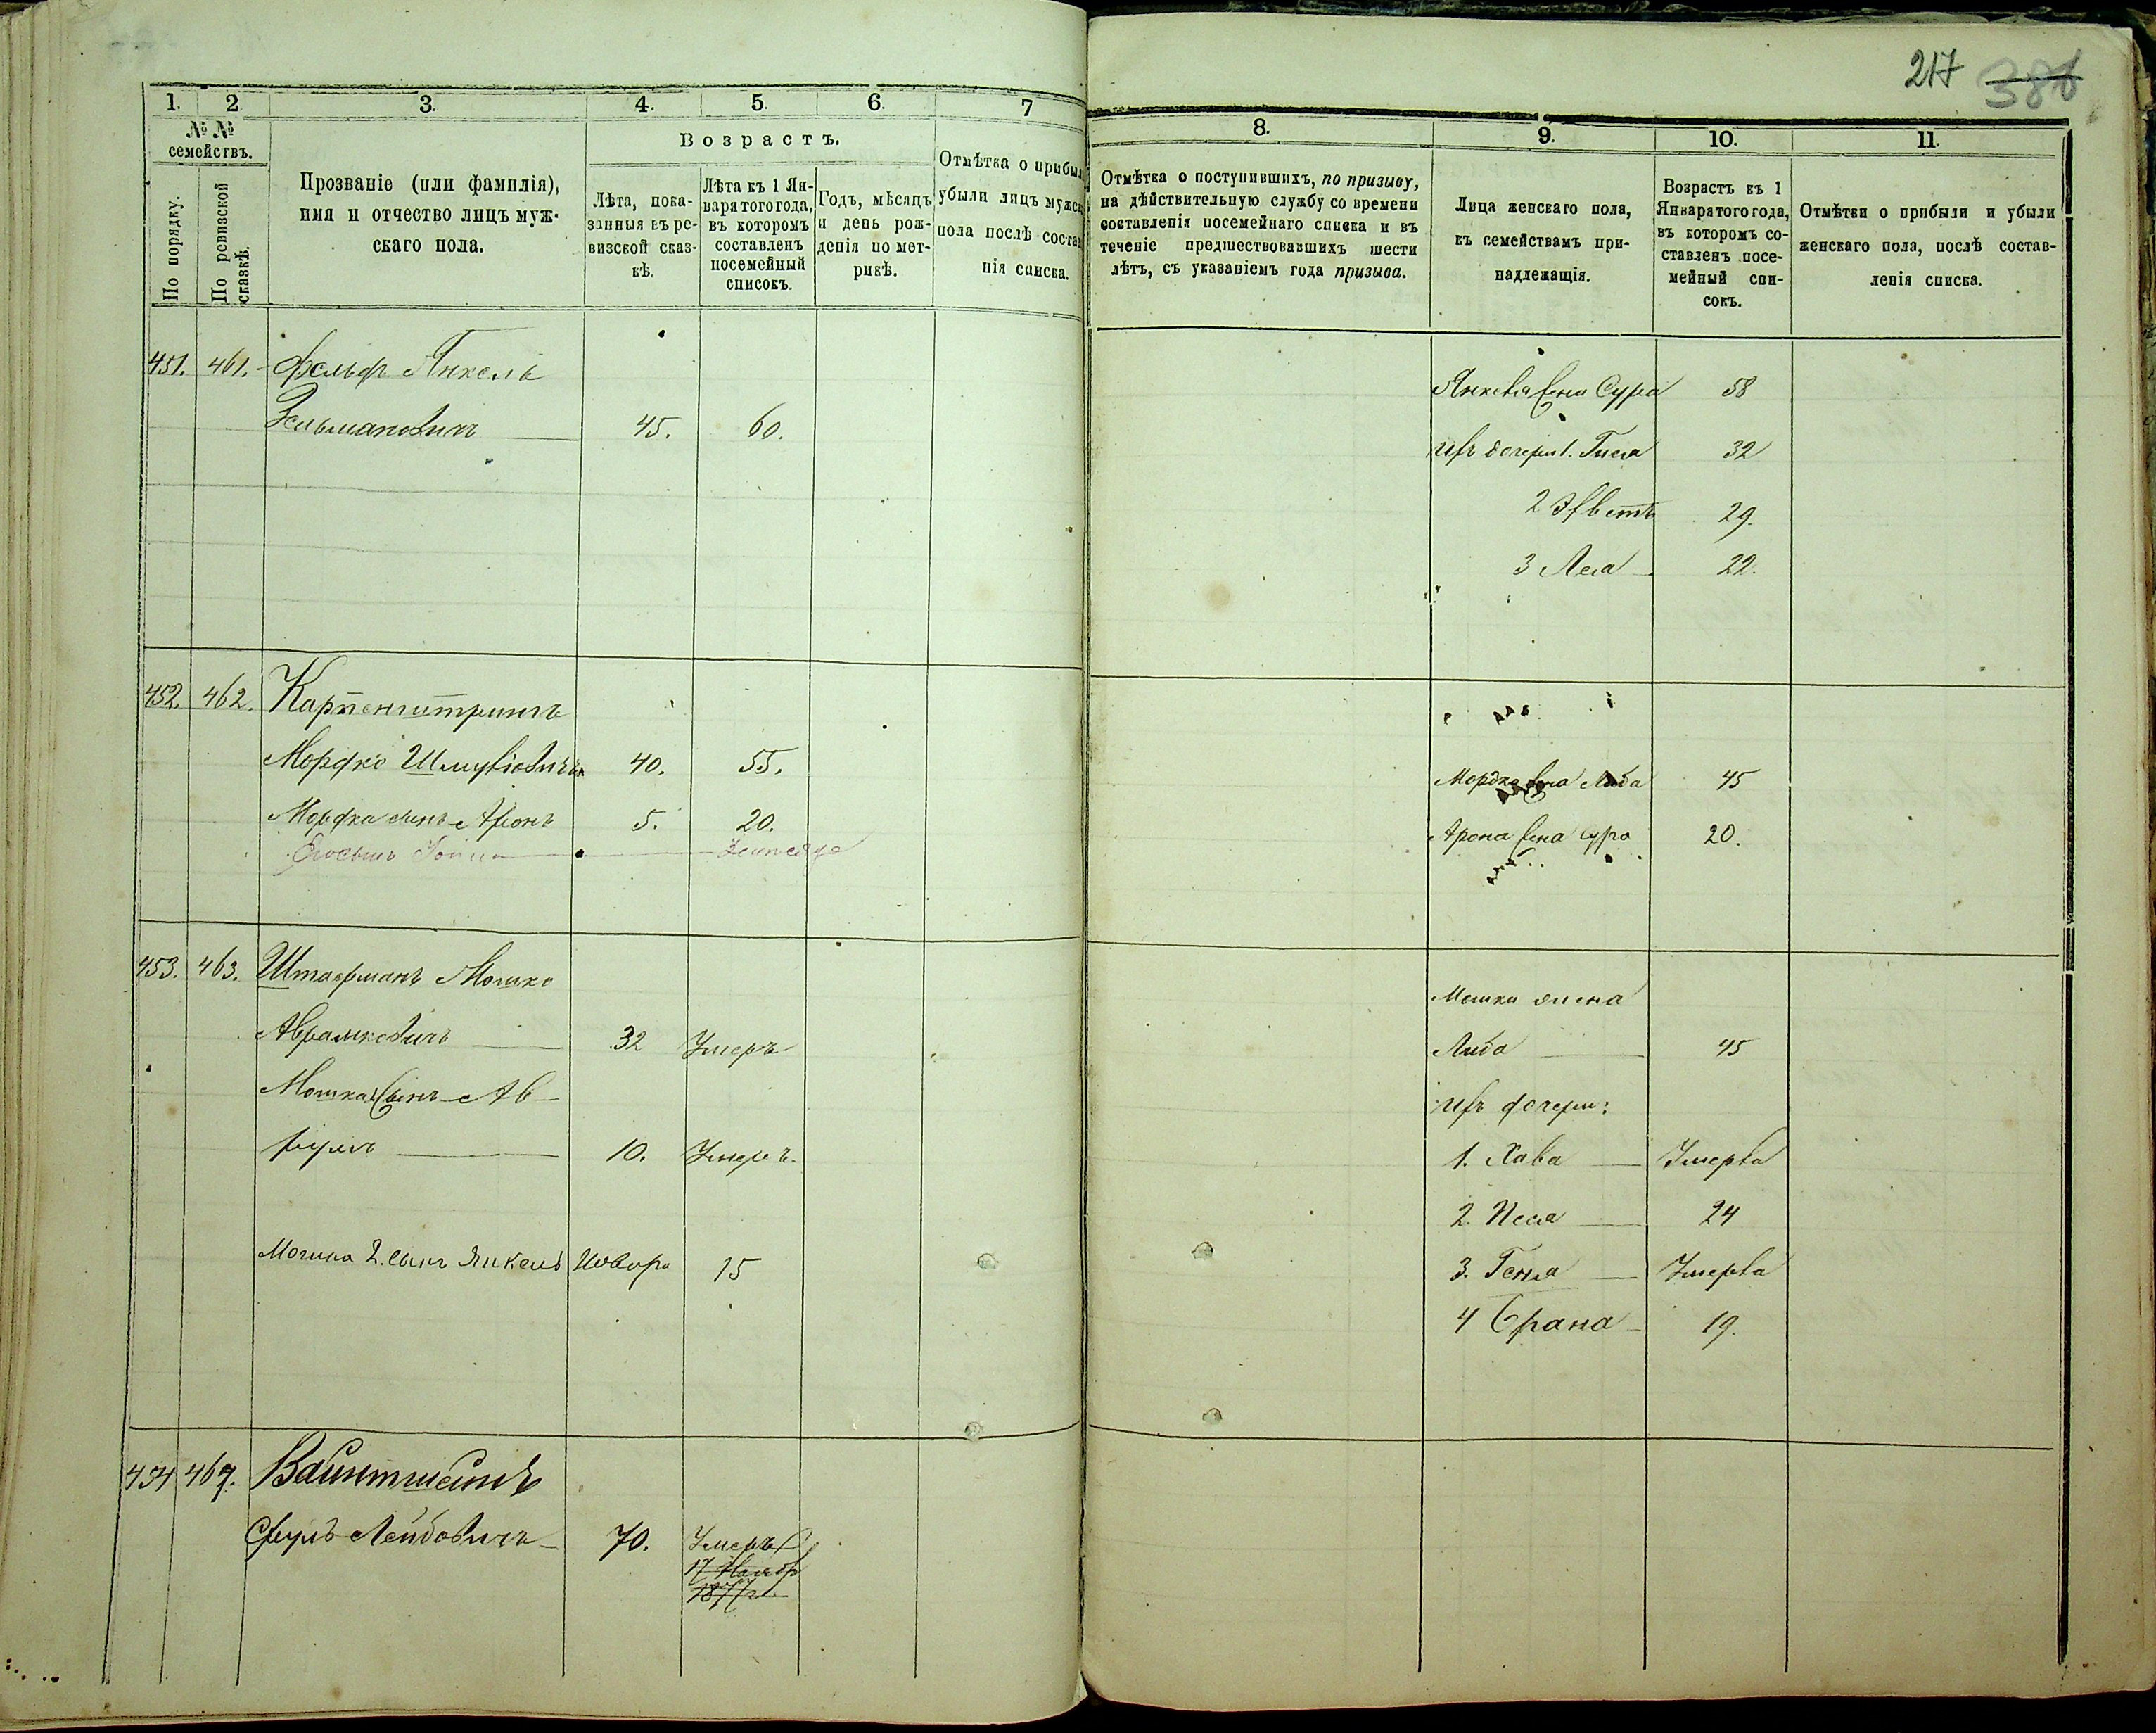 217 386
1. 2 3. 4. 5. 6. 7
№ №
семействъ.
По порядку.
По ревизской
сказкѣ.
Прозваніе (или фамилія),
имя и отчество лицъ муж-
скаго пола.
Возрастъ.
Лѣта, пока-
занныя въ ре-
визской сказ-
кѣ.
Лѣта къ 1 Ян-
варя того года,
въ которомъ
составленъ
посемейный
списокъ.
Годъ, мѣсяцъ
и день рож-
денія по мет-
рикѣ.
Отмѣтка о прибы
убыли лицъ мужс
пола послѣ состав
нія списка.
451. 461. Фельдъ Янкель
Зельмановичъ 45. 60.
452. 462. Карпенштринъ
Мордко Шмулiовичъ 40. 55.
Мордка сынъ Аронъ 5. 20.
453. 463. Штаерманъ Мошко
Аврамковичъ 32 Умеръ
Мошка 1 сынъ Ав-
румъ 10. Умеръ
Мошка 2. сынъ Янкель 15
454 464. Вайнтшейнъ
Сруль Лейбовичъ 70. Умеръ
17 Ноябр
1877 г.
8. 9. 10. 11.
Отмѣтка о поступившихъ, по призыву,
на дѣйствительную службу со времени
составленія посемейнаго списка и въ
теченіе предшествовавшихъ шести
лѣтъ, съ указаніемъ года призыва.
Лица женскаго пола,
къ семействамъ при-
надлежащія.
Возрастъ къ 1
Января того года,
въ которомъ со-
ставленъ посе-
мейный спи-
сокъ.
Отмѣтки о прибыли и убыли
женскаго пола, послѣ состав-
ленія списка.
Янкеля жена Сура 58
ихъ дочери 1. 32
2 29.
3 Леа 22.
Мордка жена Либа 45
Арона жена Сура 20.
Мошки жена
Либа 45
ихъ дочери:
1. Хава Умерла
2. Песа 24
3. Геня Умерла
4 Брана 19.